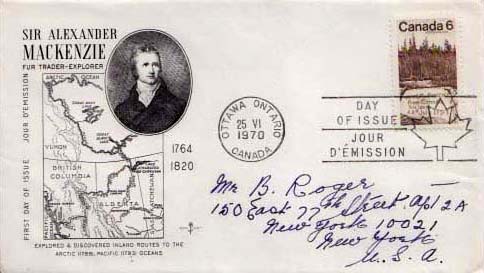 SIR ALEXANDER
MACKENZIE
FUR TRADER-EXPLORER
ARCTIC OCEAN
YUKON
BRITISH
COLUMBIA
ALBERTA
SASKATCHEWAN
PACIFIC OCEAN
FIRST DAY OF ISSUE JOUR D'ÉMISSION
1764
1820
EXPLORED & DISCOVERED INLAND ROUTES TO THE
ARCTIC (1789), PACIFIC (1793) OCEANS
OTTAWA ONTARIO
25 VI
1970
CANADA
Canada 6
DAY
OF ISSUE
JOUR
D'ÉMISSION
Mr B. Roger
150 East 77th Street Apt 2A
New York 10021
New York
U.S.A.